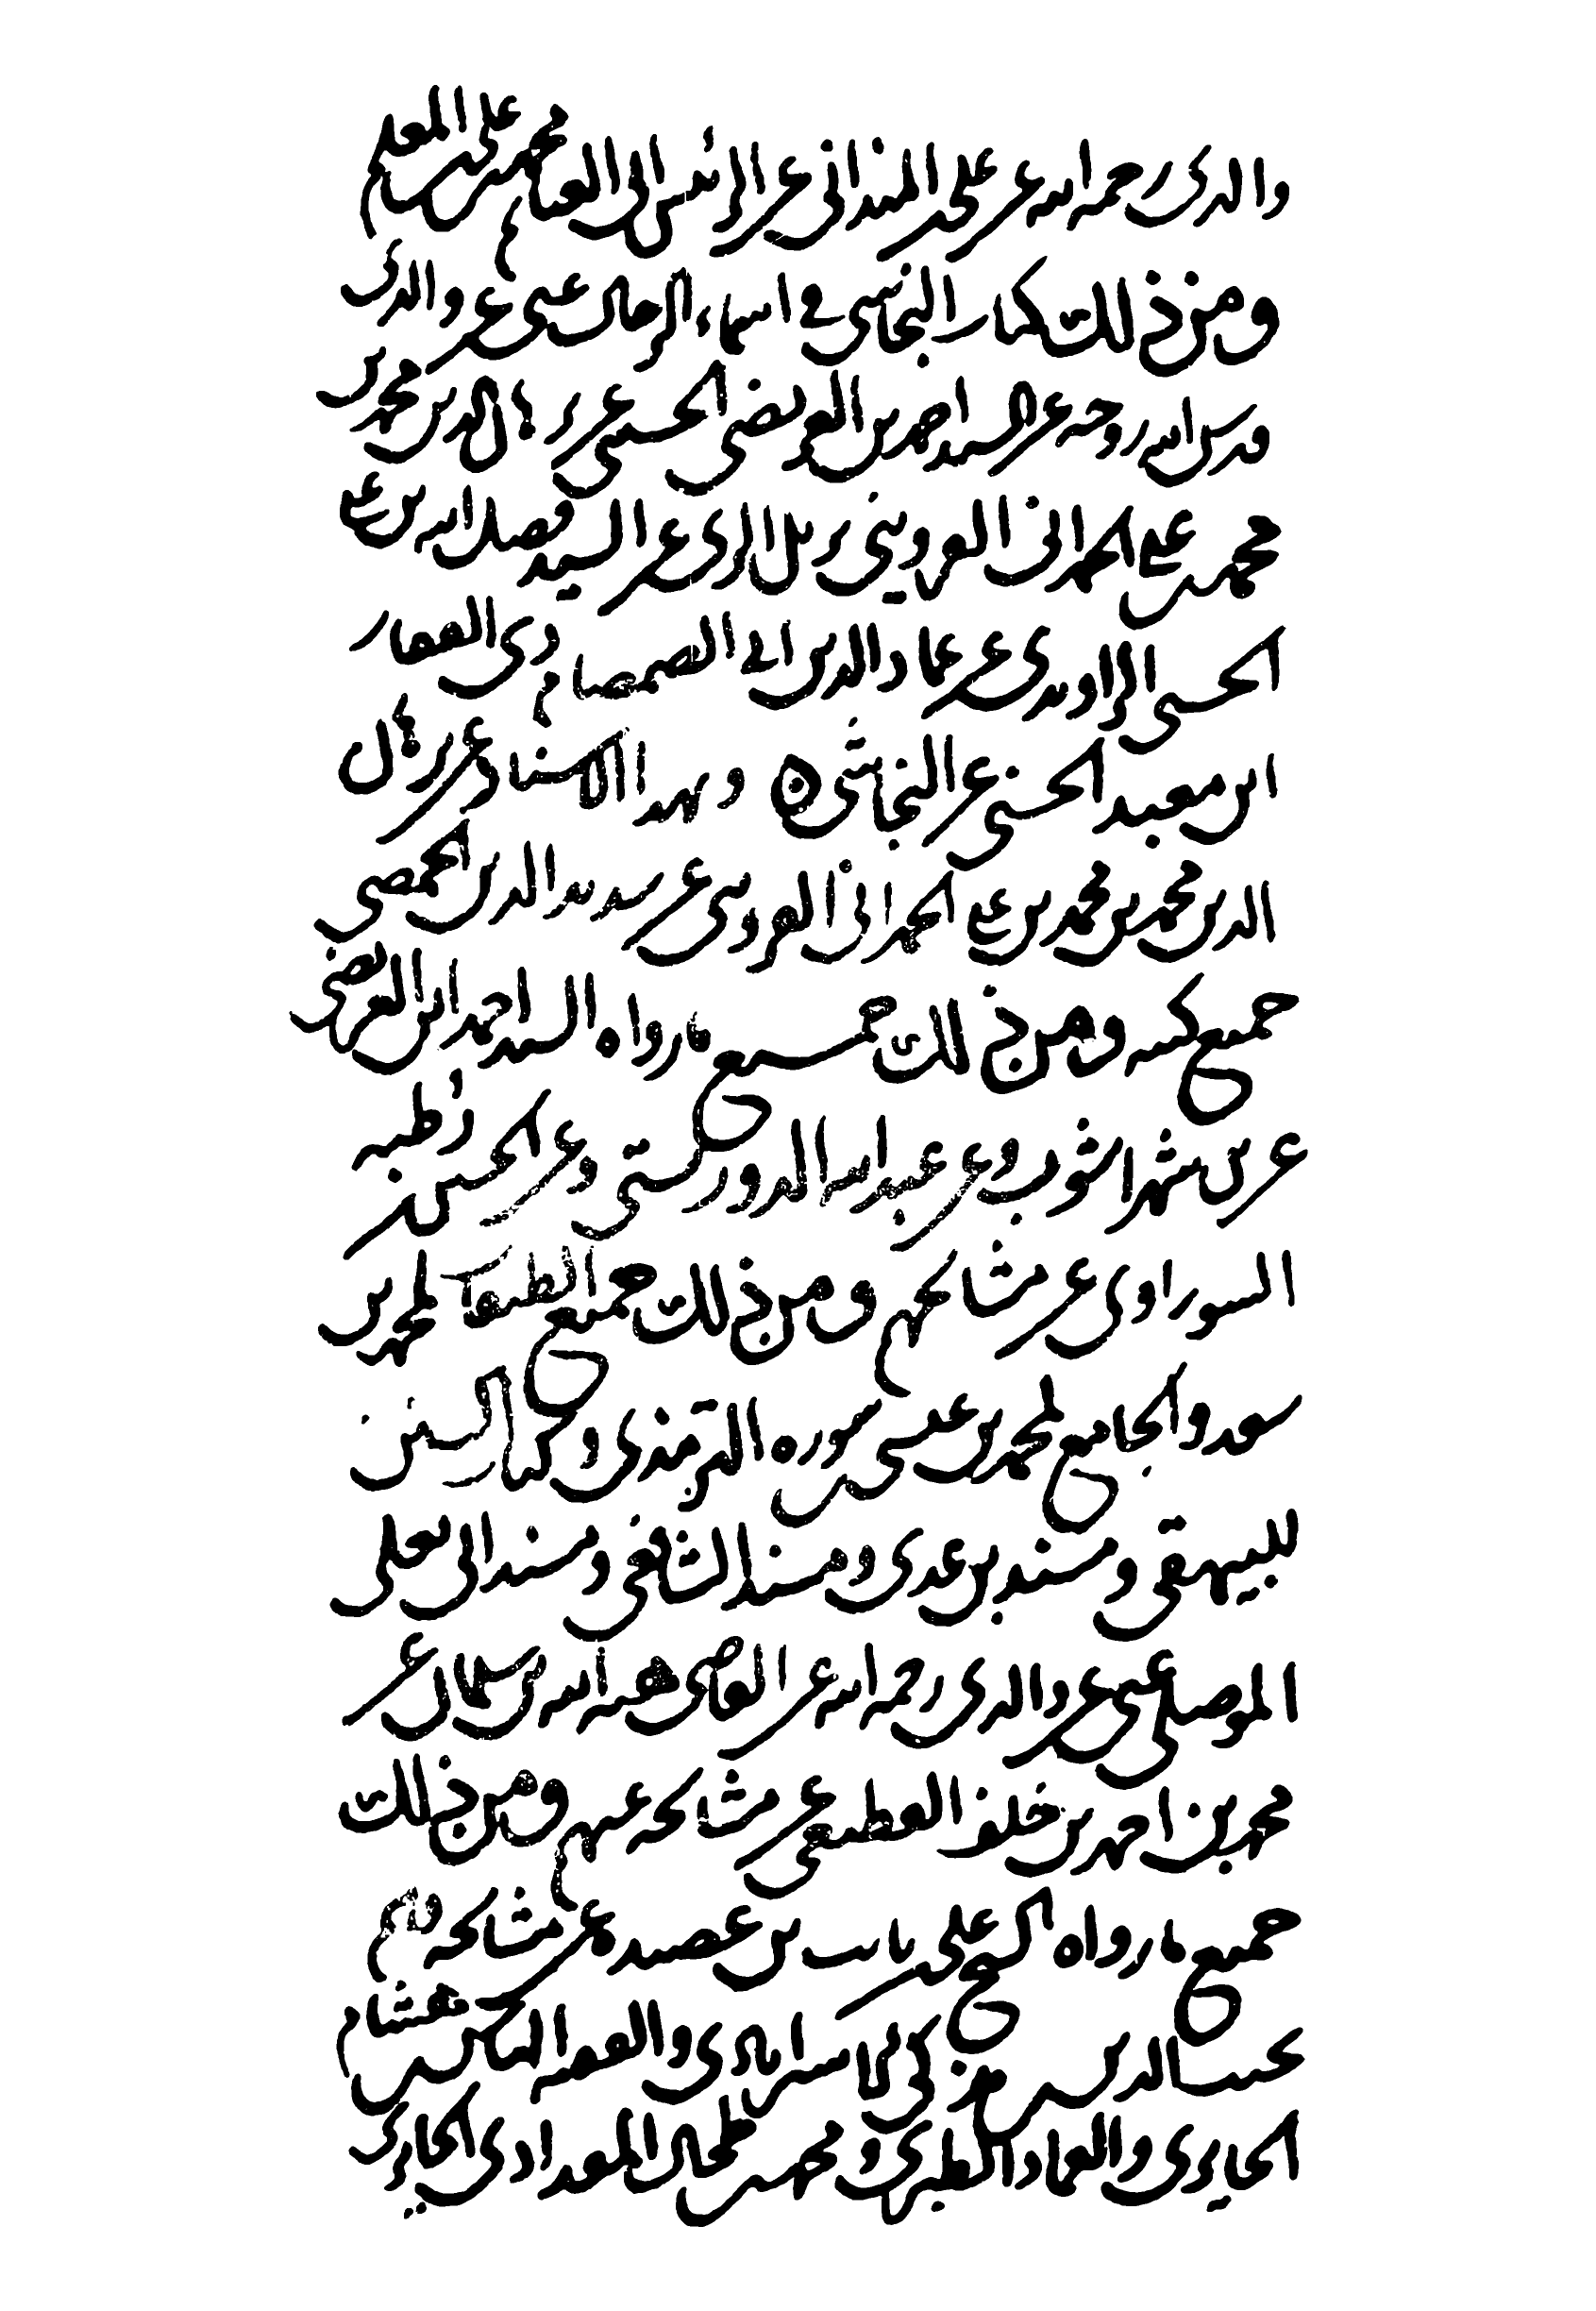 والدي رحمه الله عن علي بن المنداني عن الرئيس ابي الغنائم محمد بن علي بن المعلم
ومن ذلك كتاب النجاشي في اسماء الرجال عني عن والدي
قدس الله روحه عن السيد احمد بن العريضي الحسيني عن برهان الدين محمد بن
محمد بن علي الحمداني القزويني نزيل الري عن السيد فضل الله بن علي
الحسني الراوندي عن عماد الدين ابي الصمصام ذي الفقار
ابن معبد الحسني عن النجاشي وبهذا الاسناد عن برهان
الدين محمد بن محمد بن علي الحمداني القزويني عن سديد الدين الحمصي
جميع كتبه ومن ذلك جميع ما رواه السيد احمد ابن العريضي
عن بن شهراشوب وعن عبد الله الدوريستي وعن الحسن بن رطبه
السوراوي عن مشايخهم ومن ذلك جميع الطبقات لمحمد بن
سعد والجامع لمحمد بن عيسى بن سوره الترمذي وكتاب السنن
للبيهقي ومسند بن عدي ومسند الشافعي ومسند ابي يعلى
الموصلي عني عن والدي رحمه الله عن القاضي هبه الله بن سلمان عن
محمد بن احمد بن خلف القطيعي عن مشايخه عنهم ومن ذلك
جميع ما رواه الشيخ علي بن ثابت بن عصيده عن مشايخه
نجيب الدين بن مذكي الاسترابادي والفقيه الياس بن هشام
الحايري والعماد الطبري ومحمد بن طحال البغدادي الحايري